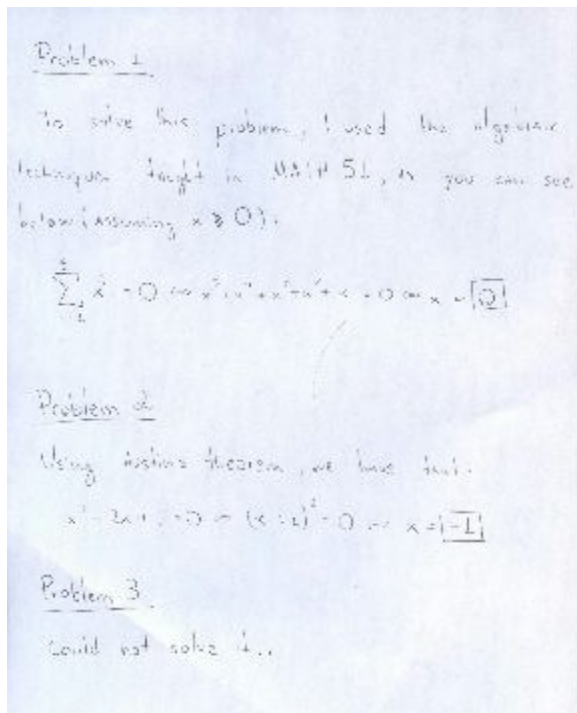 Problem 1
To solve this problem, I used the algebraic
techniques taught in MATH 51, as you can see
below (assuming x ≥ 0):
= 0 x = 0
Problem 2
Using theorem, we have that:
= 0 = 0 x = -1
Problem 3
Could not solve it..